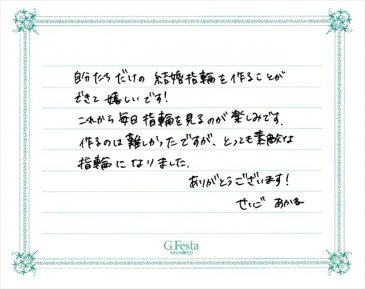 自分たちだけの 結婚指輪を作ることが
できて 嬉しいです!
これから毎日 指輪を見るのが 楽しみです.
作るのは難しかったですが、とっても素敵な
指輪に なりました.
ありがとうございます!
せいじ あかる
G.Festa
DIAMOND